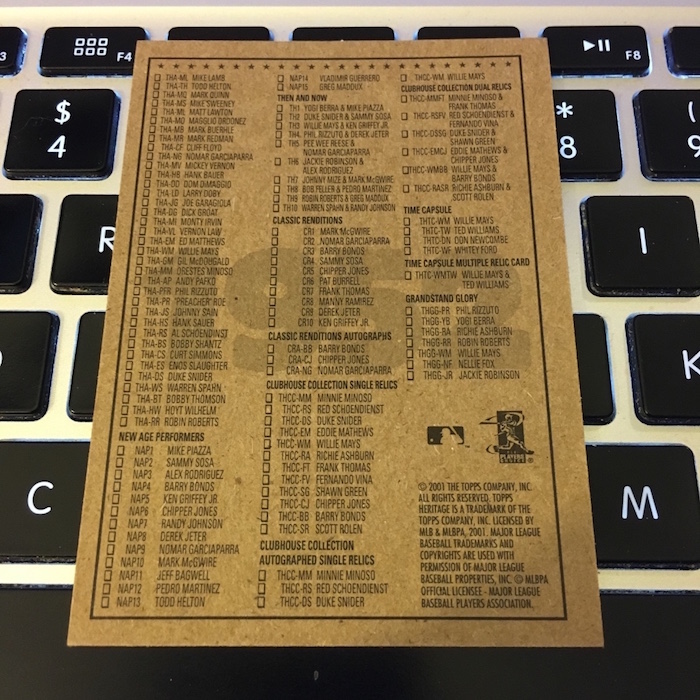 THA-ML MIKE LAMB
THA-TH TODD HELTON
THA-MQ MARK QUINN
THA-MS MIKE SWEENEY
THA-ML MATT LAWTON
THA-MO MAGGLIO ORDONEZ
THA-MB MARK BUEHRLE
THA-MR MARK REDMAN
THA-CF CLIFF FLOYD
THA-NG NOMAR GARCIAPARRA
THA-MV MICKEY VERNON
THA-HB HANK BAUER
THA-DD DOM DiMAGGIO
THA-LD LARRY DOBY
THA-JG JOE GARAGIOLA
THA-DG DICK GROAT
THA-MI MONTY IRVIN
THA-VL VERNON LAW
THA-EM ED MATTHEWS
THA-WM WILLIE MAYS
THA-GM GIL McDOUGALD
THA-MM ORESTES MINOSO
THA-AP ANDY PAFKO
THA-PFR PHIL RIZZUTO
THA-PR "PREACHER" ROE
THA-JS JOHNNY SAIN
THA-HS HANK SAUER
THA-RS AL SCHOENDINST
THA-BS BOBBY SHANTZ
THA-CS CURT SIMMONS
THA-ES ENOS SLAUGHTER
THA-DS DUKE SNIDER
THA-WS WARREN SPAHN
THA-BT BOBBY THOMSON
THA-HW HOYT WILHELM
THA-RR ROBIN ROBERTS
NEW AGE PERFORMERS
NAP1 MIKE PIAZZA
NAP2 SAMMY SOSA
NAP3 ALEX RODRIGUEZ
NAP4 BARRY BONDS
NAP5 KEN GRIFFEY JR.
NAP6 CHIPPER JONES
NAP7 RANDY JOHNSON
NAP8 DEREK JETER
NAP9 NOMAR GARCIAPARRA
NAP10 MARK McGWIRE
NAP11 JEFF BAGWELL
NAP12 PEDRO MARTINEZ
NAP13 TODD HELTON
NAP14 VLADIMIR GUERRERO
NAP15 GREG MADDUX
THEN AND NOW
TH1 YOGI BERRA & MIKE PIAZZA
TH2 DUKE SNIDER & SAMMY SOSA
TH3 WILLIE MAYS & KEN GRIFFEY JR.
TH4 PHIL RIZZUTO & DEREK JETER
TH5 PEE WEE REESE &
NOMAR GARCIAPARRA
TH6 JACKIE ROBINSON &
ALEX RODRIGUEZ
TH7 JOHNNY MIZE & MARK McGWIRE
TH8 BOB FELLER & PEDRO MARTINEZ
TH9 ROBIN ROBERTS & GREG MADDUX
TH10 WARREN SPAHN & RANDY JOHNSON
CLASSIC RENDITIONS
CR1 MARK McGWIRE
CR2 NOMAR GARCIAPARRA
CR3 BARRY BONDS
CR4 SAMMY SOSA
CR5 CHIPPER JONES
CR6 PAT BURRELL
CR7 FRANK THOMAS
CR8 MANNY RAMIREZ
CR9 DEREK JETER
CR10 KEN GRIFFEY JR.
CLASSIC RENDITIONS AUTOGRAPHS
CRA-BB BARRY BONDS
CRA-CJ CHIPPER JONES
CRA-NG NOMAR GARCIAPARRA
CLUBHOUSE COLLECTION SINGLE RELICS
THCC-MM MINNIE MINOSO
THCC-RS RED SCHOENDIENST
THCC-DS DUKE SNIDER
THCC-EM EDDIE MATHEWS
THCC-WM WILLIE MAYS
THCC-RA RICHIE ASHBURN
THCC-FT FRANK THOMAS
THCC-FV FERNANDO VINA
THCC-SG SHAWN GREEN
THCC-CJ CHIPPER JONES
THCC-BB BARRY BONDS
THCC-SR SCOTT ROLEN
CLUBHOUSE COLLECTION
AUTOGRAPHED SINGLE RELICS
THCC-MM MINNIE MINOSO
THCC-RS RED SCHOENDIENST
THCC-DS DUKE SNIDER
THCC-WM WILLIE MAYS
CLUBHOUSE COLLECTION DUAL RELICS
THCC-MMFT MINNIE MINOSO &
FRANK THOMAS
THCC-RSFV RED SCHOENDIENST &
FERNANDO VINA
THCC-DSSG DUKE SNIDER &
SHAWN GREEN
THCC-EMCJ EDDIE MATHEWS &
CHIPPER JONES
THCC-WMBB WILLIE MAYS &
BARRY BONDS
THCC-RASR RICHIE ASHBURN &
SCOTT ROLEN
TIME CAPSULE
THTC-WM WILLIE MAYS
THTC-TW TED WILLIAMS
THTC-DN DON NEWCOMBE
THTC-WF WHITEY FORD
TIME CAPSULE MULTIPLE RELIC CARD
THTC-WMTW WILLIE MAYS &
TED WILLIAMS
GRANDSTAND GLORY
THGG-PR PHIL RIZZUTO
THGG-YB YOGI BERRA
THGG-RA RICHIE ASHBURN
THGG-RR ROBIN ROBERTS
THGG-WM WILLIE MAYS
THGG-NF NELLIE FOX
THGG-JR JACKIE ROBINSON
© 2001 THE TOPPS COMPANY, INC.
ALL RIGHTS RESERVED. TOPPS
HERITAGE IS A TRADEMARK OF THE
TOPPS COMPANY, INC. LICENSED BY
MLB & MLBPA, 2001. MAJOR LEAGUE
BASEBALL TRADEMARKS AND
COPYRIGHTS ARE USED WITH
PERMISSION OF MAJOR LEAGUE
BASEBALL PROPERTIES, INC. © MLBPA
OFFICIAL LICENSEE - MAJOR LEAGUE
BASEBALL PLAYERS ASSOCIATION.
F4
F8
$
4
*
8
(
9
R
I
K
C
M